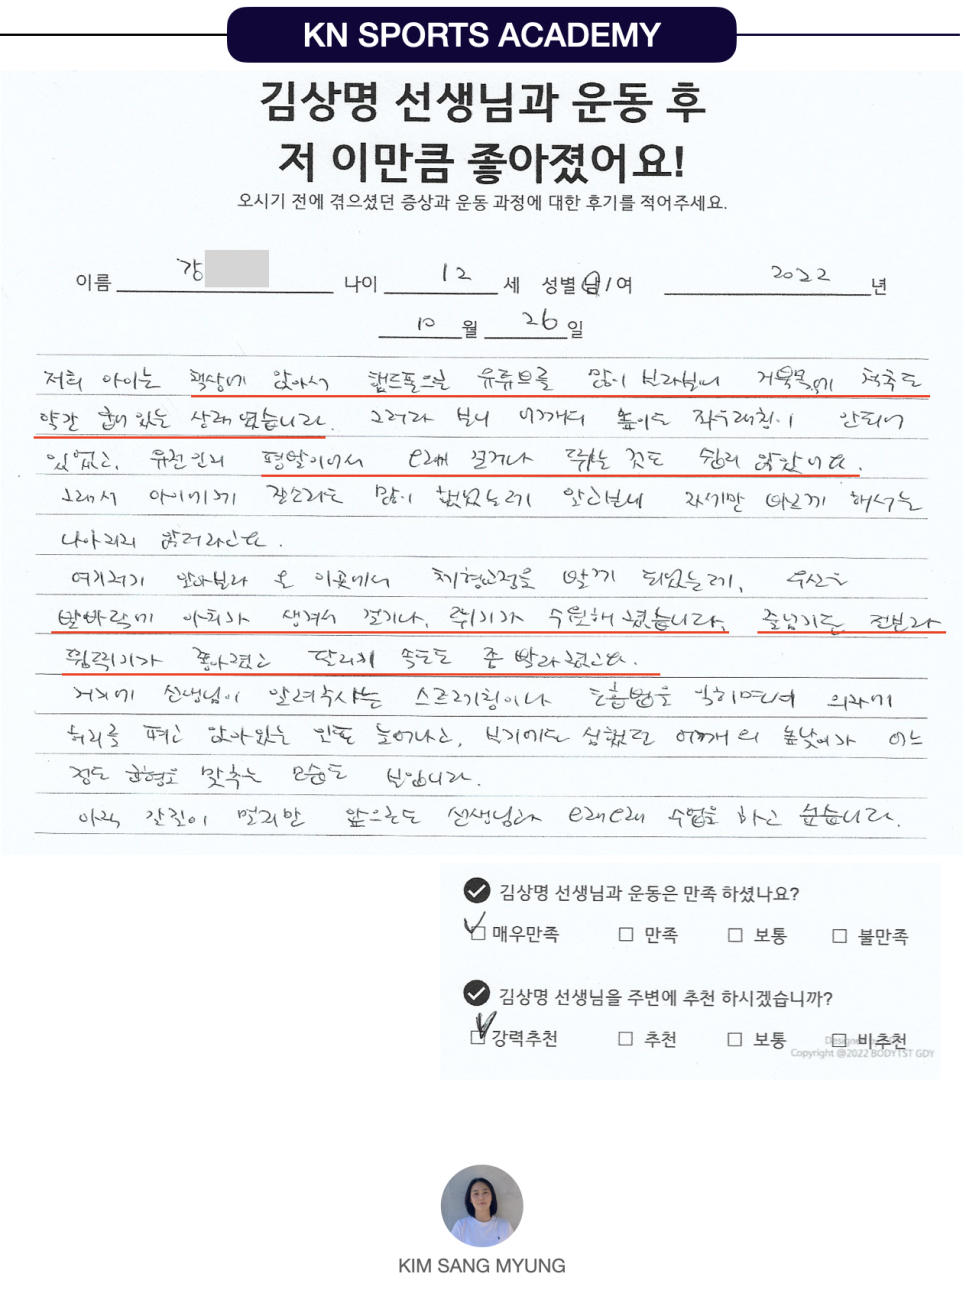 KN SPORTS ACADEMY
김상명 선생님과 운동 후
저 이만큼 좋아졌어요!
오시기 전에 겪으셨던 증상과 운동 과정에 대한 후기를 적어주세요.
이름 강 나이 12 세 성별 남 / 여 2022 년
10 월 26 일
저희 아이는 책상에 앉아서 핸드폰으로 유튜브를 많이 보다보니 거북목에 척추도
약간 굽어 있는 상태였습니다. 그러다 보니 어깨의 높이도 좌우대칭이 안되어
있었고, 유전인지 평발이어서 오래 걷거나 뛰는 것도 쉽지 않았어요.
그래서 아이에게 잔소리도 많이 했었는데 알고보니 자세만 바르게 해서는
나아지지 않더라고요.
여기저기 알아보다 온 이곳에서 체형교정을 받게 되었는데, 우선은
발바닥에 아치가 생겨서 걷기나, 뛰기가 수월해졌습니다. 줄넘기를 전보다
뜀뛰기가 좋아졌고 달리기 속도도 좀 빨라졌고요.
거기에 선생님이 알려주시는 스트레칭이나 호흡법을 익히면서 의자에
허리를 펴고 앉아있는 빈도 늘어나고, 보기에도 심했던 어깨의 높낮이가 어느
정도 균형을 맞추는 모습도 보입니다.
아직 갈길이 멀지만 앞으로도 선생님과 오래오래 수업을 하고 싶습니다.
김상명 선생님과 운동은 만족 하셨나요?
매우만족 만족 보통 불만족
김상명 선생님을 주변에 추천 하시겠습니까?
강력추천 추천 보통 비추천
Copyright @2022 BODYTST GDY
KIM SANG MYUNG